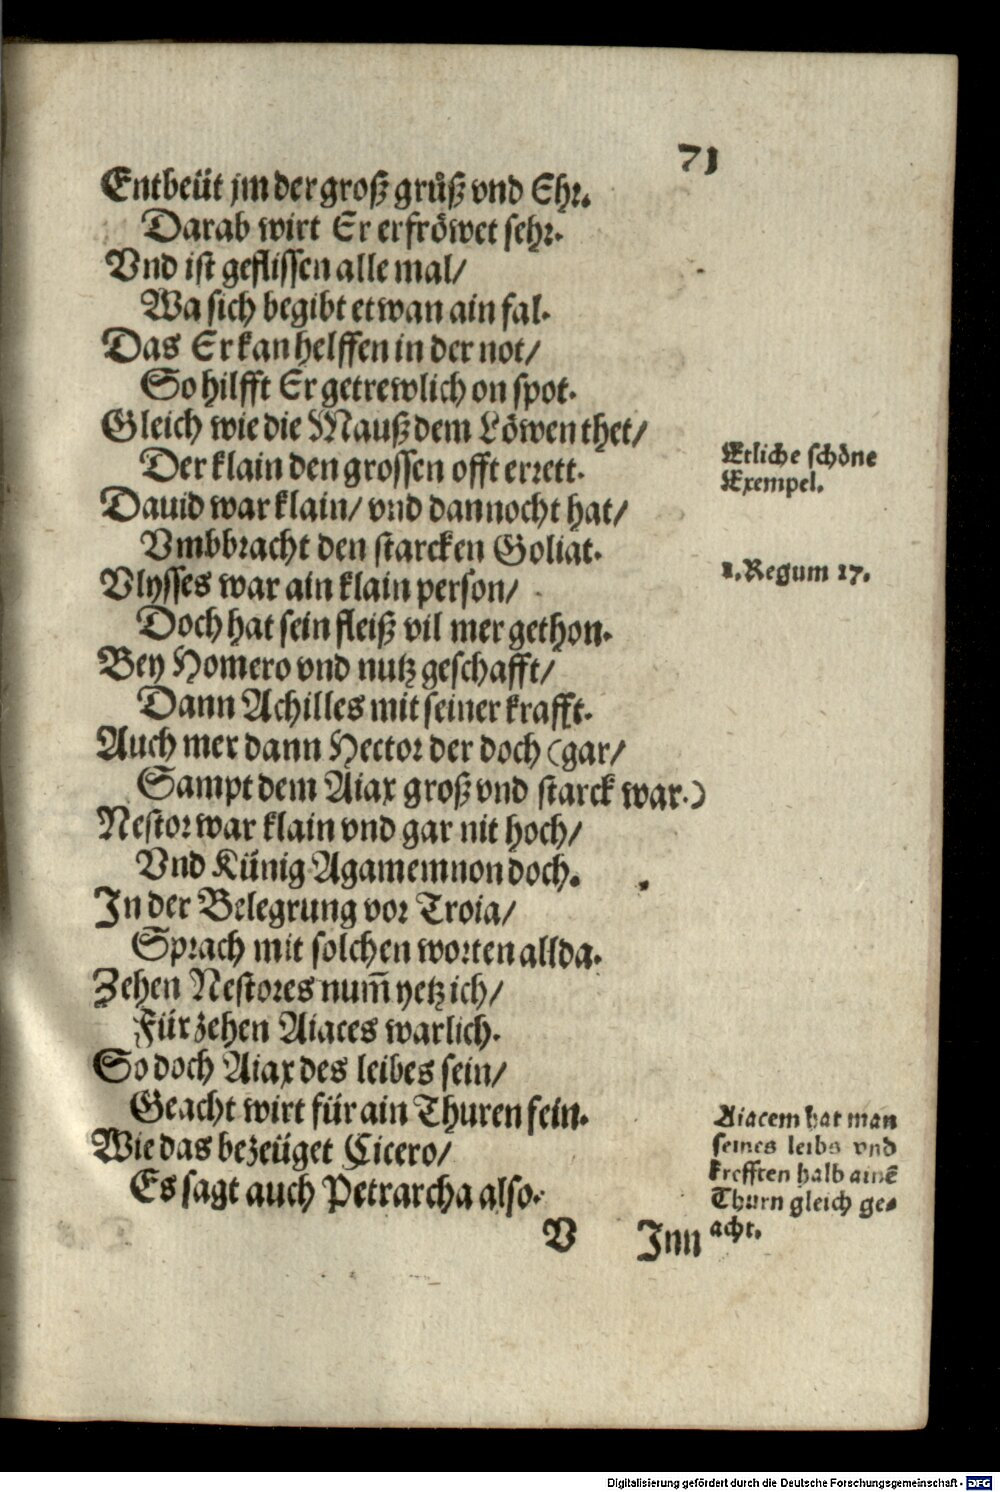 71
Entbeüt jm der groß grůß vnd Ehr.
Darab wirt Er erfröwet sehr.
Vnd ist geflissen alle mal/
Wa sich begibt etwan ain fal.
Das Er kan helffen in der not/
So hilfft Er getrewlich on spot.
Gleich wie die Mauß dem Löwen thet/
Der klain den grossen offt errett.
Dauid war klain/ vnd dannocht hat/
Vmbbracht den starcken Goliat.
Vlysses war ain klain person/
Doch hat sein fleiß vil mer gethon.
Bey Homero vnd nutz geschafft/
Dann Achilles mit seiner krafft.
Auch mer dann Hector der doch (gar/
Sampt dem Aiax groß vnd starck war.)
Nestor war klain vnd gar nit hoch/
Vnd Künig Agamemnon doch.
In der Belegrung vor Troia/
Sprach mit solchen worten allda.
Zehen Nestores num̄ yetz ich/
Für zehen Aiaces warlich.
So doch Aiax des leibes sein/
Geacht wirt für ain Thuren fein.
Wie das bezeüget Cicero/
Es sagt auch Petrarcha also.
V Inn
Etliche schöne
Exempel.
1. Regum 17.
Aiacem hat man
seines leibs vnd
krefften halb ainē
Thurn gleich ge-
acht.
Digitalisierung gefördert durch die Deutsche Forschungsgemeinschaft - DFG